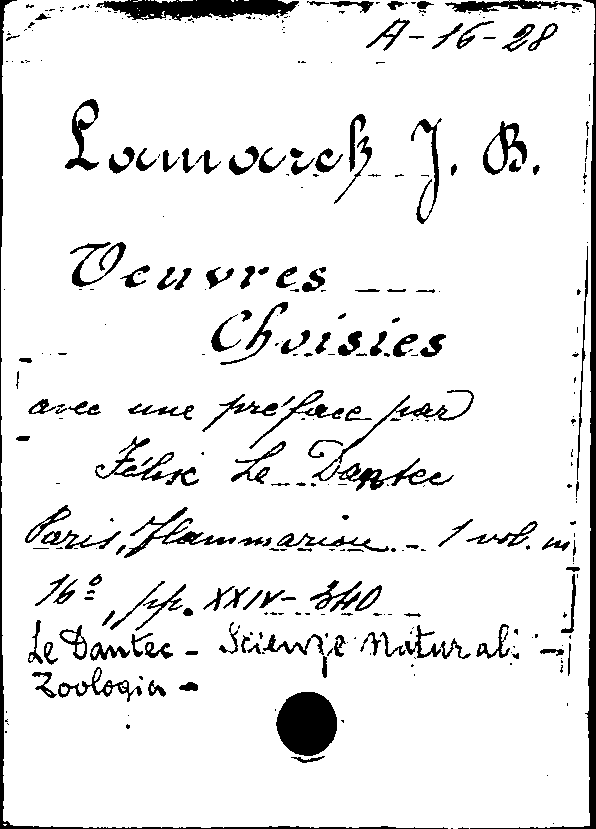 A-16-28
Lamarck J. B.
Oeuvres
Choisies
avec une préface par
Félix Le Dantec
Paris, Flammarion - 1 vol. in
16º, pp. XXIV-340
Le Dantec - Scienze Naturali -
Zoologia -